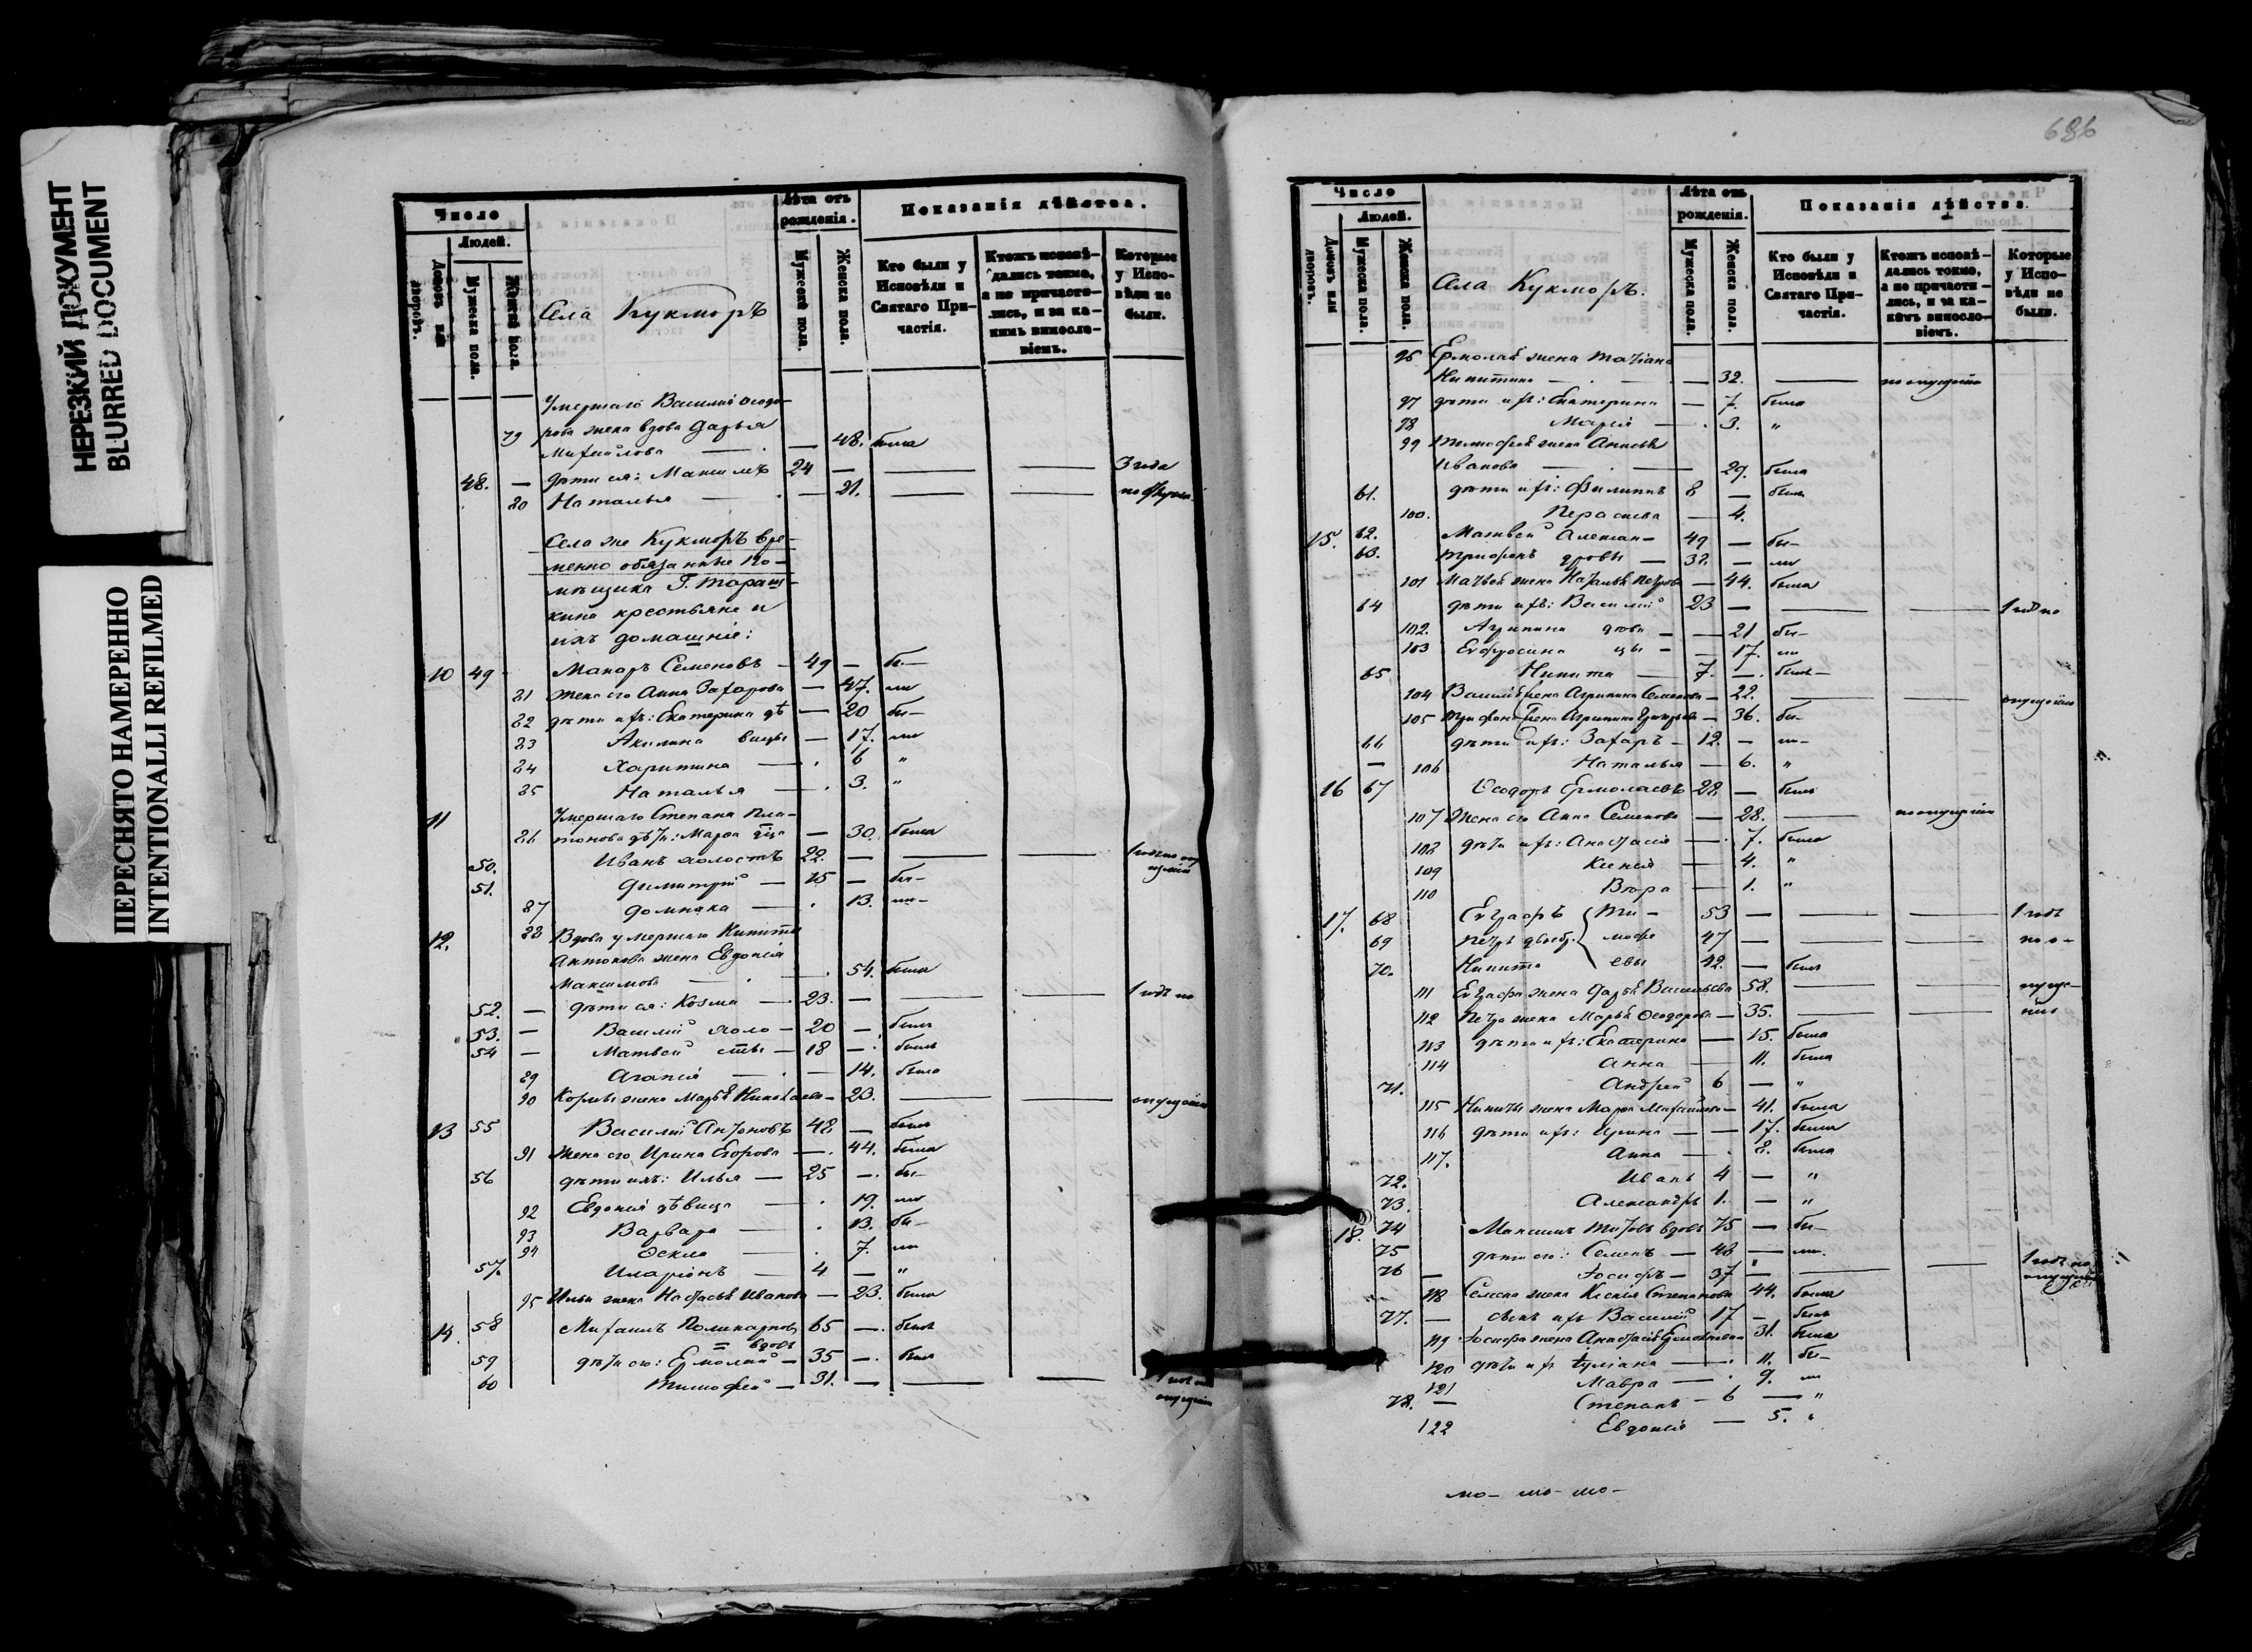 НЕРЕЗКИЙ ДОКУМЕНТ
BLURRED DOCUMENT
ПЕРЕСНЯТО НАМЕРЕННО
INTENTIONALLI REFILMED
Число
Людей.
Домовъ или дворовъ.
Мужеска пола.
Женска пола.
Села Кукморъ
Лѣта отъ рожденія.
Мужеска пола.
Женска пола.
Показанія дѣйства.
Кто были у Исповѣди и Святаго Причастія.
Ктожъ исповѣдались токмо, а не причастились, и за какимъ винословіемъ.
Которые у Исповѣди не были.
Умершаго Василія Ѳедо-
79 рова жена вдова Дарья
Михайлова — 48. была
48. — дѣти ея: Максимъ 24 — — — 3 года
80 Наталья — 21. — —
Села же Кукморъ вре-
менно обязанные по-
мѣщика Г.
крестьяне и
ихъ домашніе:
10 49 Макаръ Семеновъ — 49 — бы-
81 жена его Анна Захарова — 47. ли
82 дѣти ихъ: Екатерина дѣ — 20 бы-
83 Акилина вицы — 17. ли
84 Харитина — 6 "
85 Наталья — 3. "
11 Умершаго Степана Пла-
86 тонова дѣти: Марѳа — 30. была
50. Иванъ холостъ 22. — — —
51. Димитрій — 15 — бы-
87 Домника — 13. ли-
12. 88 Вдова умершаго Никиты
Антонова жена Евдокія
Максимова — 54. была
52. — дѣти ея: Козма — 23. — — — 1 годъ по
53. — Василій холо- 20 — былъ
54 — Матвей сты — 18 — былъ
89 Агапія — 14. была
90 Козмы жена Марья Николаева — 23. — — опущенію
13 55 Василій Антоновъ 48 — былъ
91 Жена его Ирина Егорова — 44. была
56 дѣти ихъ: Илья — 25 — бы-
92 Евдокія дѣвица — 19. ли
93 Варвара — 13. бы-
94 Ѳекла — 7. ли
57. Иларіонъ — 4 — "
95 Ильи жена Настасья Иванова — 23. была
14. 58 Михаилъ Поликарповъ 65 — былъ
вдовъ
59 дѣти его: Ермолай — 35 — былъ
60 Тимофей — 31. — — — 1 годъ по
опущенію
686
Число
Людей.
Домовъ или дворовъ.
Мужеска пола.
Женска пола.
Села Кукморъ.
Лѣта отъ рожденія.
Мужеска пола.
Женска пола.
Показанія дѣйства.
Кто были у Исповѣди и Святаго Причастія.
Ктожъ исповѣдались токмо, а не причастились, и за какимъ винословіемъ.
Которые у Исповѣди не были.
96 Ермолая жена Татіана
Никитина — 32. — по опущенію
97 дѣти ихъ: Екатерина — 7. была
98 Марія — 3. "
99 Тимофея жена Анисья
Иванова — 29. была
61. дѣти ихъ: Филиппъ 8 — былъ
100. Параскева — 4.
15. 62. Матвей Алексан- 49 — бы-
63. Трифонъ дровы — 32. — ли
101 Матвея жена Наталья Петрова — 44. была
64 дѣти ихъ: Василій 23 — — — 1 годъ по
102. Агрипина дѣви — 21 бы-
103 Евфросина цы — 17. ли
65 Никита — 7. — былъ-
104 Василія жена Агрипина Семенова — 22. — — опущенію
105 Трифона жена Агрипина Григорьева — 36. бы-
66 дѣти ихъ: Захаръ — 12. — ли-
— 106 Наталья — 6. "
16 67 Ѳеодоръ Ермолаевъ 28 — былъ
107 Жена его Анна Семенова — 28. — по опущенію
108 дѣти ихъ: Анастасія — 7. была
109 Ксенія — 4. "
110 Вѣра — 1. "
17. 68 Евграфъ Ти- 53 — — — 1 годъ
69 Петръ мофе 47 — — — по о-
70. Никита евы 42. — былъ
111 Евграфа жена Дарья Васильева 58. — — пуще-
112 Петра жена Марья Ѳеодорова — 35. — — нію
113 дѣти ихъ: Екатерина — 15. была
114 Анна — 11. была
71. Андрей 6 — "
115 Никиты жена Марѳа Михайлова — 41. была
116 дѣти ихъ: Ирина — 17. была
117. Анна — 8. была
72. Иванъ 4 — "
73. Александръ 1. — "
18. 74 Максимъ Титовъ вдовъ 75 — бы-
75 дѣти его: Семенъ — 48 — ли.
76 — Іосифъ — 37 — — — 1 годъ по
опущенію
118 Семена жена Ксенія Степанова 44. была
77. — сынъ ихъ Василій 17 — былъ
119 Іосифа жена Анастасія Ермолаева 31. была
120 дѣти ихъ Іуліана — 11. бы-
121 Мавра — 9. ли
78. — Степанъ — 6 — "
122 Евдокія — 5. "